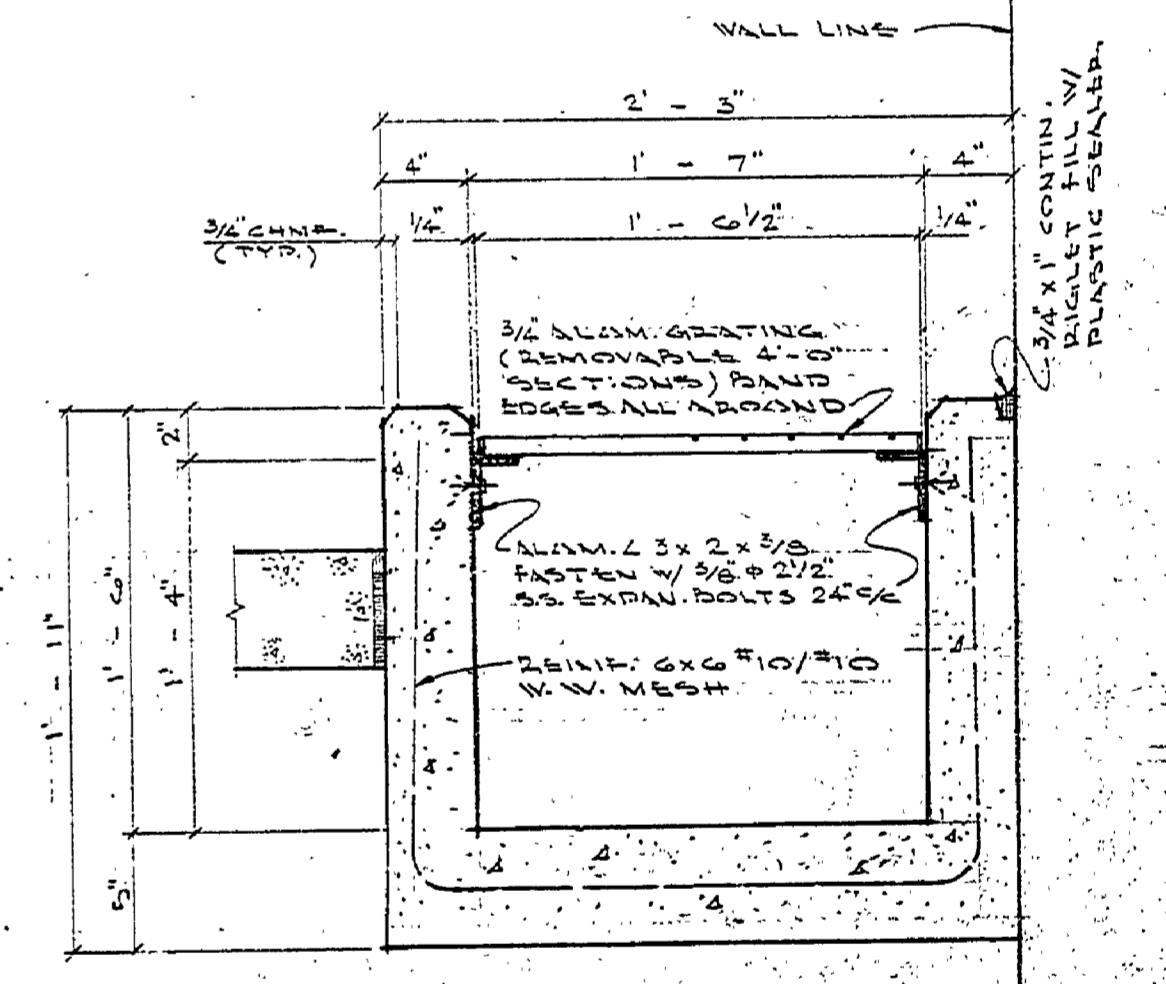 WALL LINE
2' - 3"
4"
1' - 7"
4"
3/4" CHMF.
(TYP.)
1/4"
1' - 6 1/2"
1/4"
3/4" X 1" CONTIN.
RIGLET FILL W/
PLASTIC SEALER.
3/4" ALUM. GRATING
(REMOVABLE 4'-0"
SECTIONS) BAND
EDGES ALL AROUND
2"
1' - 4"
1' - 6"
1' - 11"
5"
ALUM. ∠ 3 x 2 x 3/8
FASTEN W/ 3/8" Φ 2 1/2"
S.S. EXPAN. BOLTS 24" C/C
REINF. 6X6 #10/#10
W. W. MESH